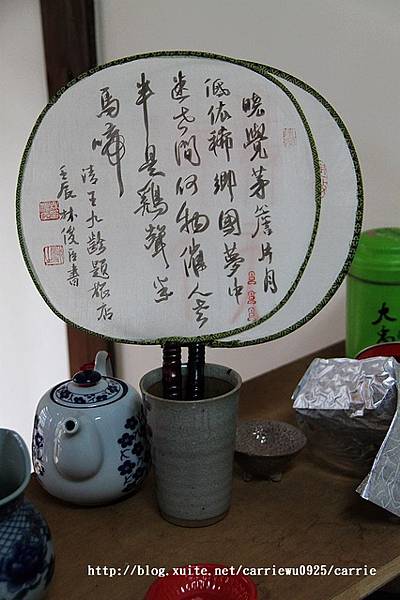 曉覺茅簷片月
低依稀鄉國夢中
迷世間何物催人老
半是鷄聲半
馬啼
清王九齡題旅店
壬辰林俊臣書
大
http://blog.xuite.net/carriewu0925/carrie